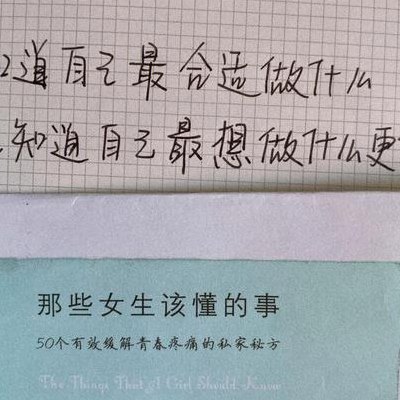 道自己最合适做什么
知道自己最想做什么更
那些女生该懂的事
50个有效缓解青春疼痛的私家秘方
The Things That A Girl Should Know